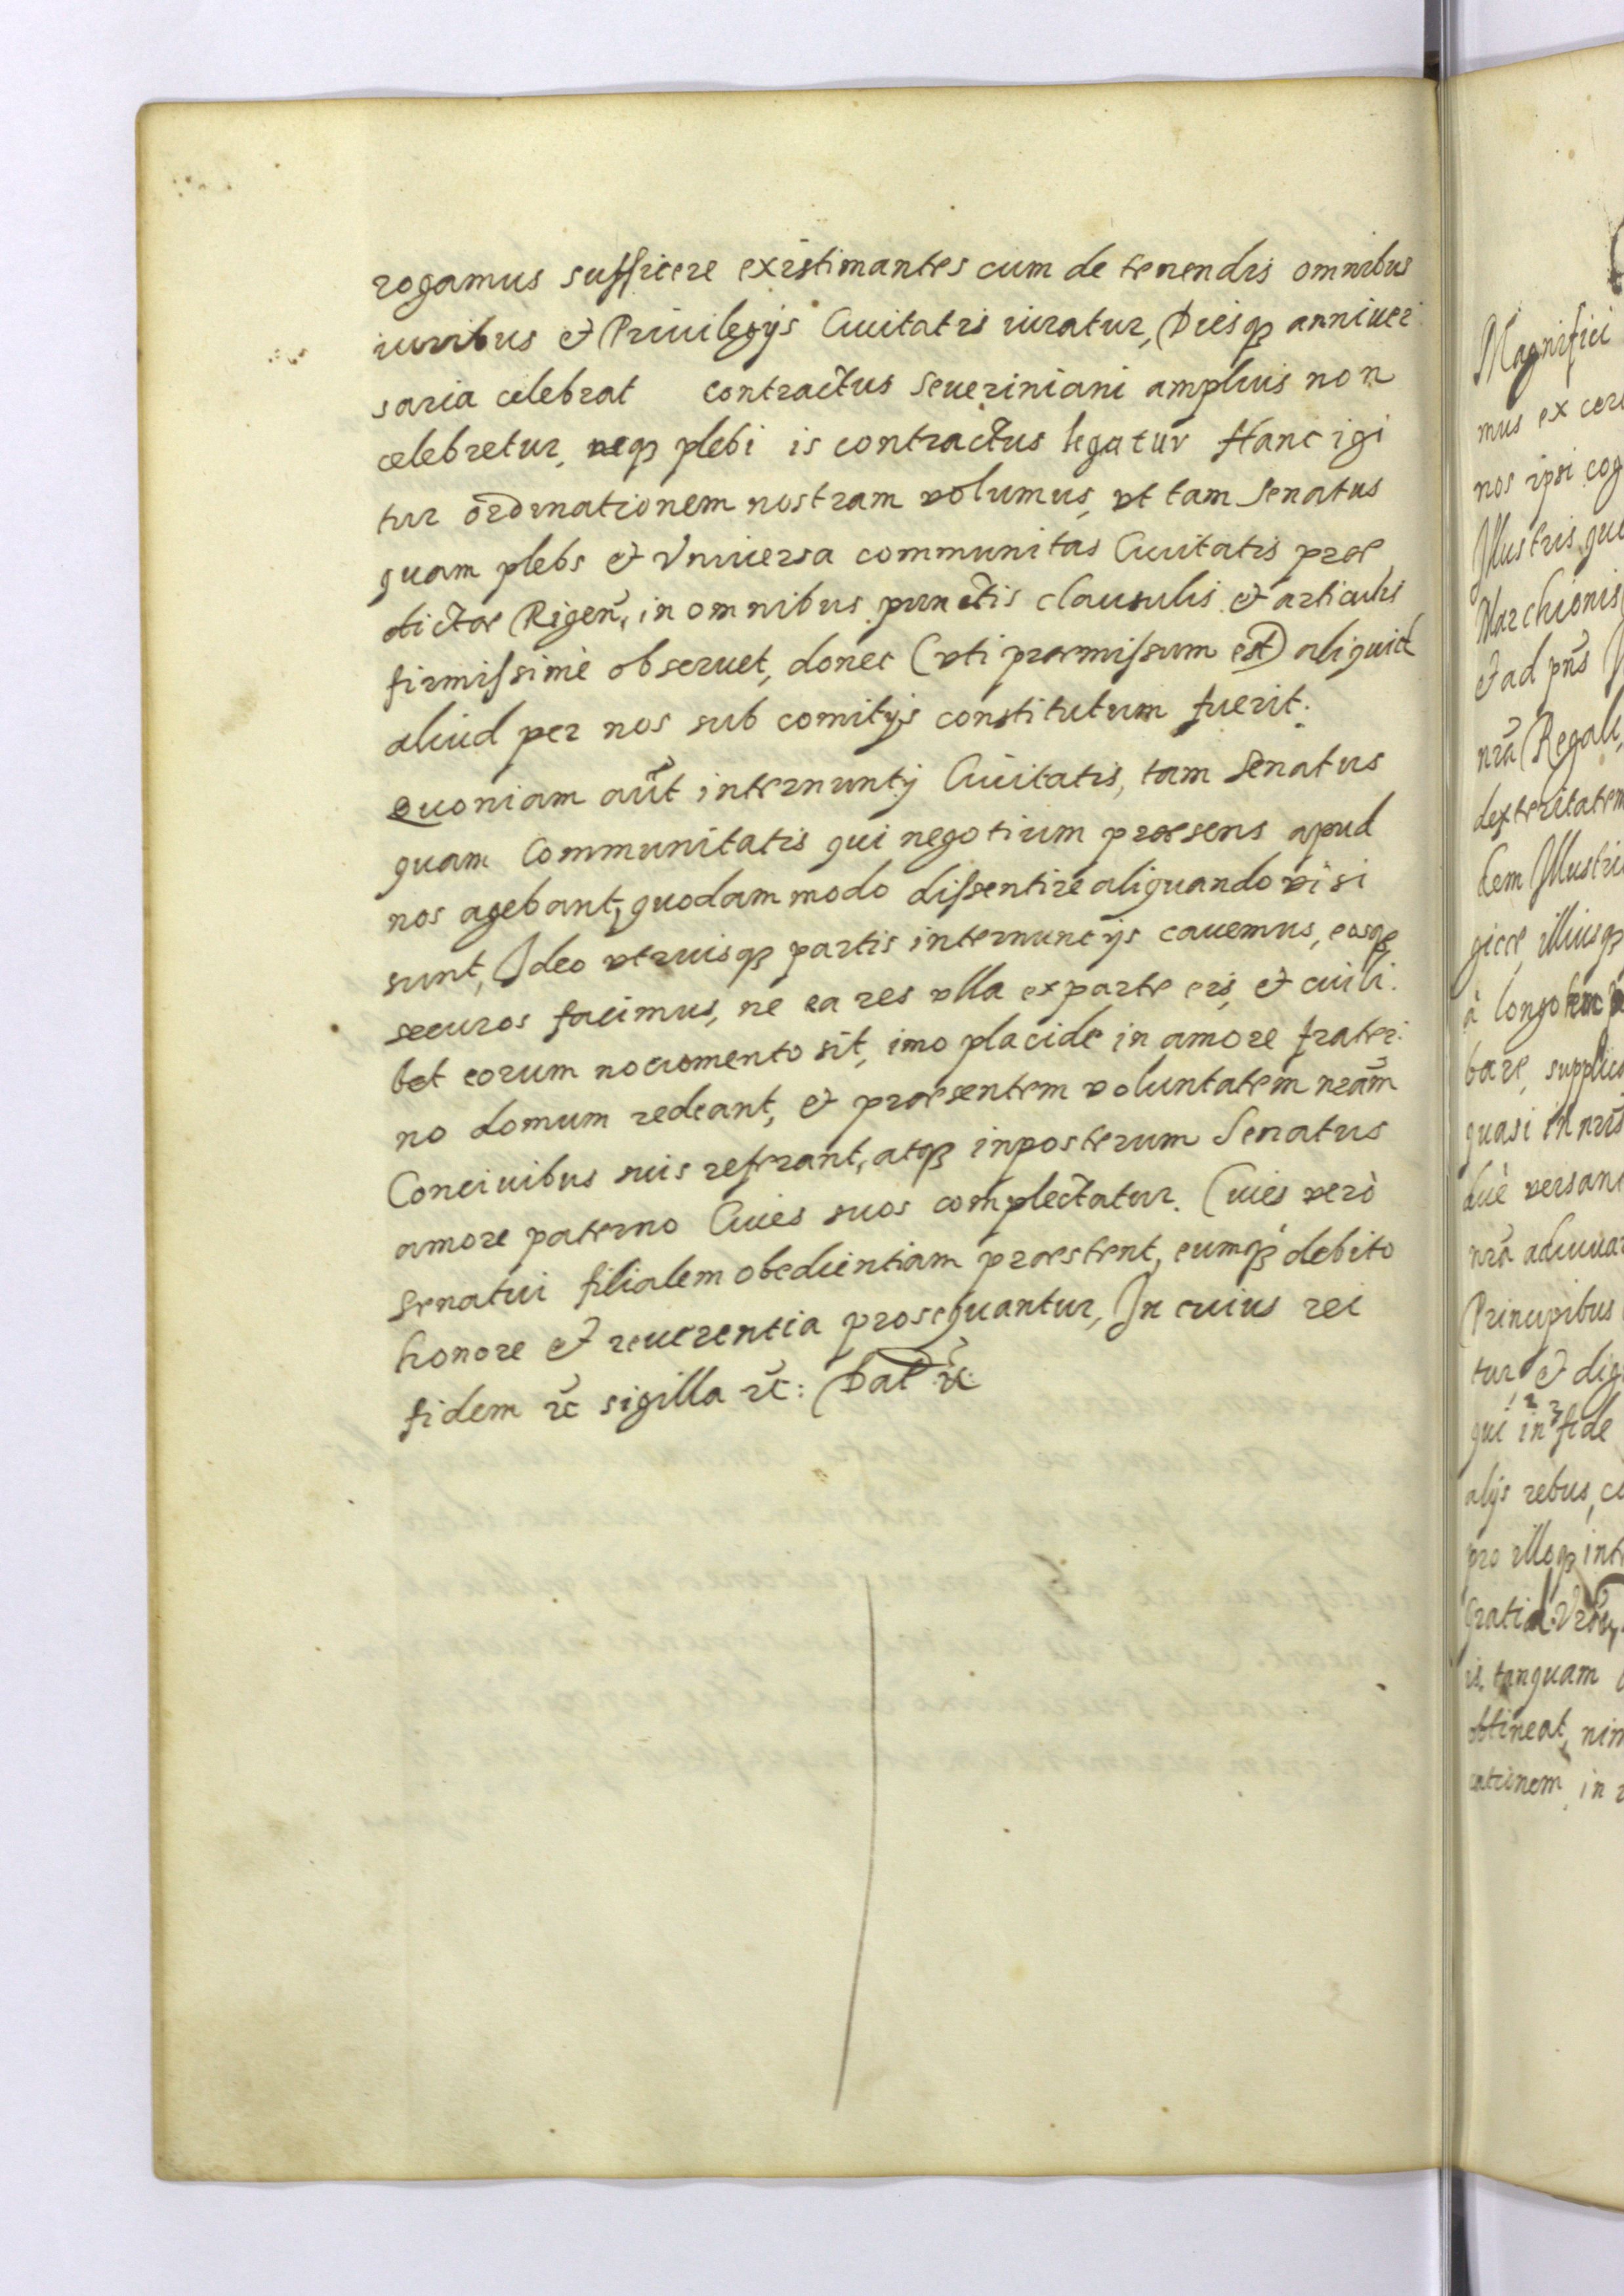 rogamus sufficere existimantes cum de tenendis omnibus
iuribus et Priuilegijs Ciuitatis iuratur, Diesq₃ anniuer
saria celebrat contractus Seueriniani amplius non
celebretur, neq₃ plebi is contractus legatur Hanc igi
tur ordinationem nostram volumus, vt tam Senatus
quam plebs et Vniuersa communitas Ciuitatis prae
dictae Rigen̄, in omnibus punctis clausulis et articulis
firmissimè obseruet, donec (vti praemissum est) aliquid
aliud per nos sub comitijs constitutum fuerit.
Quoniam aūt internuntij Ciuitatis, tam Senatus
quam Communitatis qui negotium praesens apud
nos agebant, quodammodo dissentire aliquando visi
sunt, Ideo vtriusq₃ partis internuncijs cauemus, eosq₃
securos facimus, ne ea res vlla ex parte eis, et cuili
bet eorum nocumento sit, imo placide in amore frater
no domum redeant, et praesentem voluntatem nrām
Conciuibus suis referant, atq₃ inposterum Senatus
amore paterno Ciues suos complectatur. Ciues verò
Senatui filialem obedientiam praestent, eumq₃ debito
honore et reuerentia prosequantur, In cuius rei
fidem ꝛc̄ sigilla ꝛc̄: Dat ꝛc̄
Magnifici
mus ex
nos ipsi
Illustris
Marchionis
et ad pn̄s
nrā Regali
dexteritatem
dem
illiusq₃
à longo
bare,
quasi in
versant
nrā
Principibus
tur et
qui in fide
alijs rebus,
pro illoq₃
is tanquam
obtineat,
in